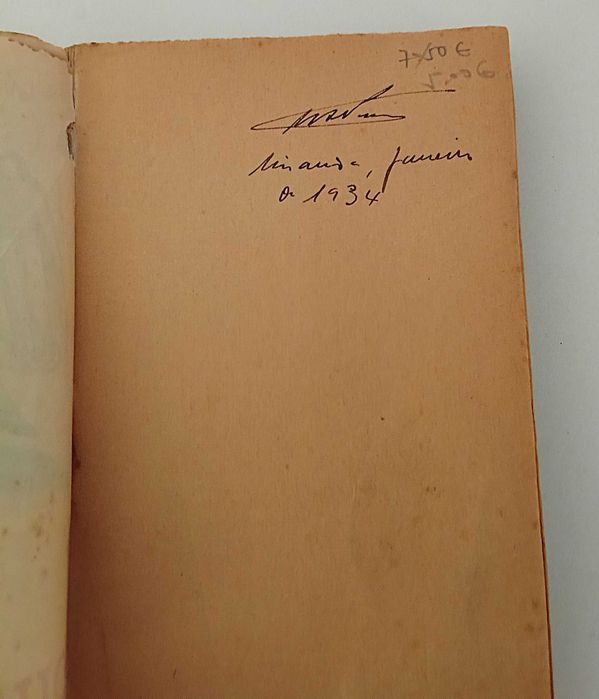 7,50 €
5,00€
Miranda, Janeiro
de 1934